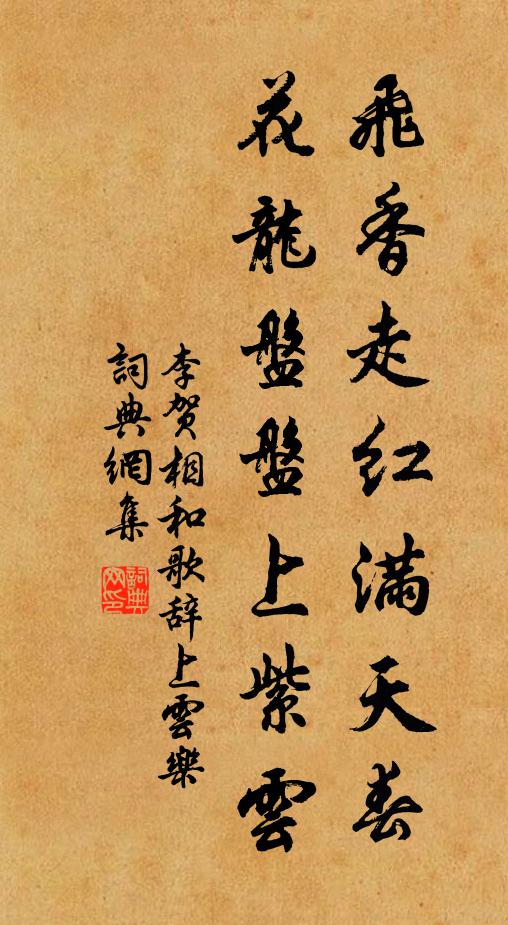 飛香走红滿天春
花龍盤盤上紫雲
李賀相和歌辞上雲樂
詞典網集
詞典网印